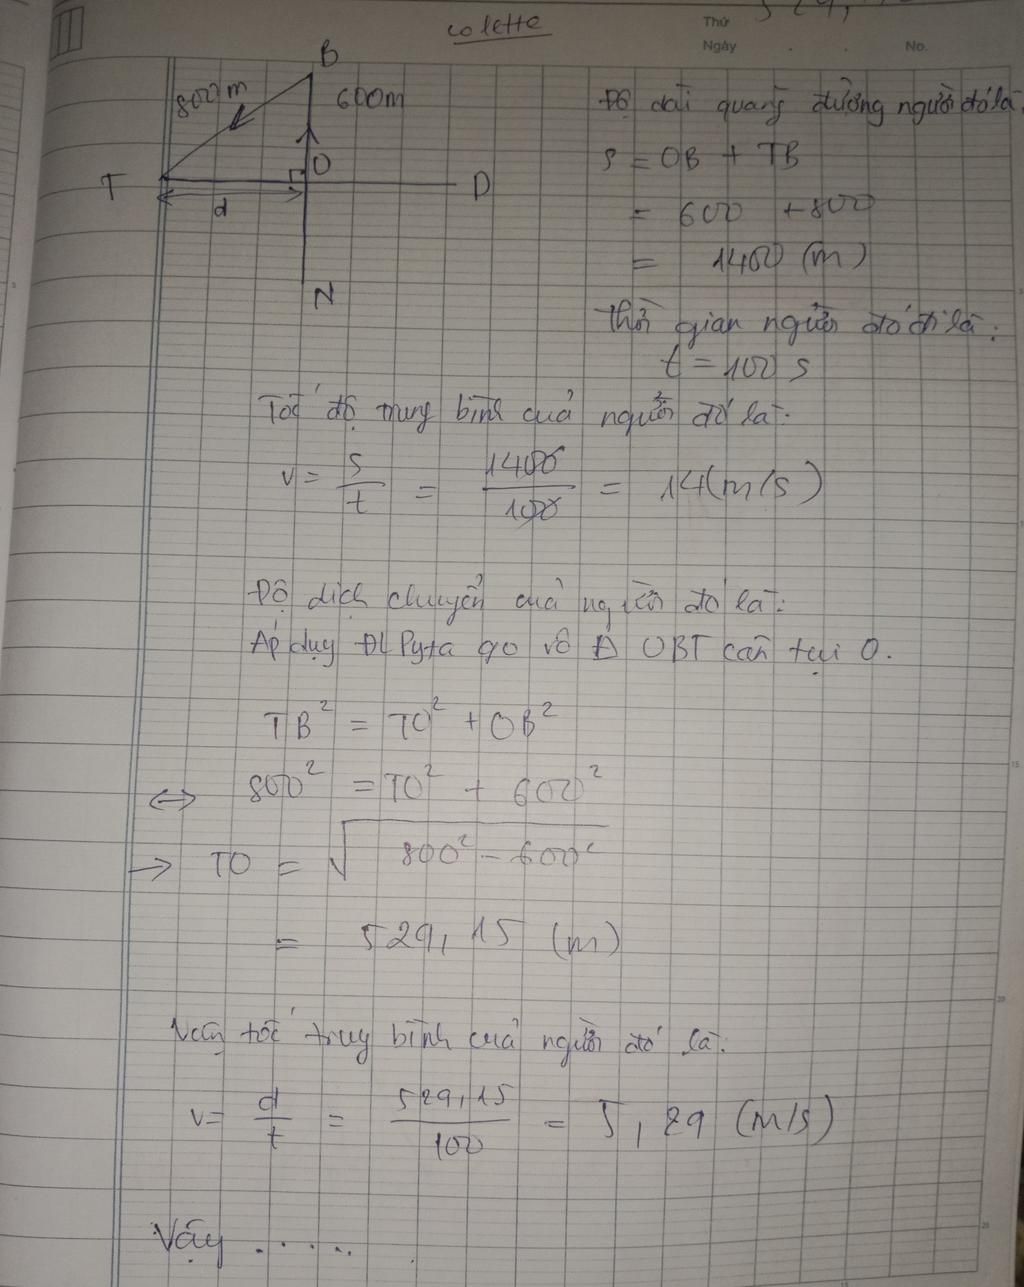 colette
Thứ
Ngày . . No.
B
800m
600m
O
T
D
d
N
Độ dài quãng đường người đó là:
S = OB + TB
= 600 + 800
= 1400 (m)
Thời gian người đó đi là:
t = 100 s
Tốc độ trung bình của người đó là:
v = s/t = 1400/100 = 14 (m/s)
Độ dịch chuyển của người đó là:
Áp dụg ĐL Pyta go vô Δ OBT cân tại O.
TB² = TO² + OB²
<-> 800² = TO² + 600²
-> TO = √800² - 600²
= 529,15 (m)
Vận tốc trug bình của người đó là:
v = d/t = 529,15/100 = 5,29 (m/s)
Vậy ......